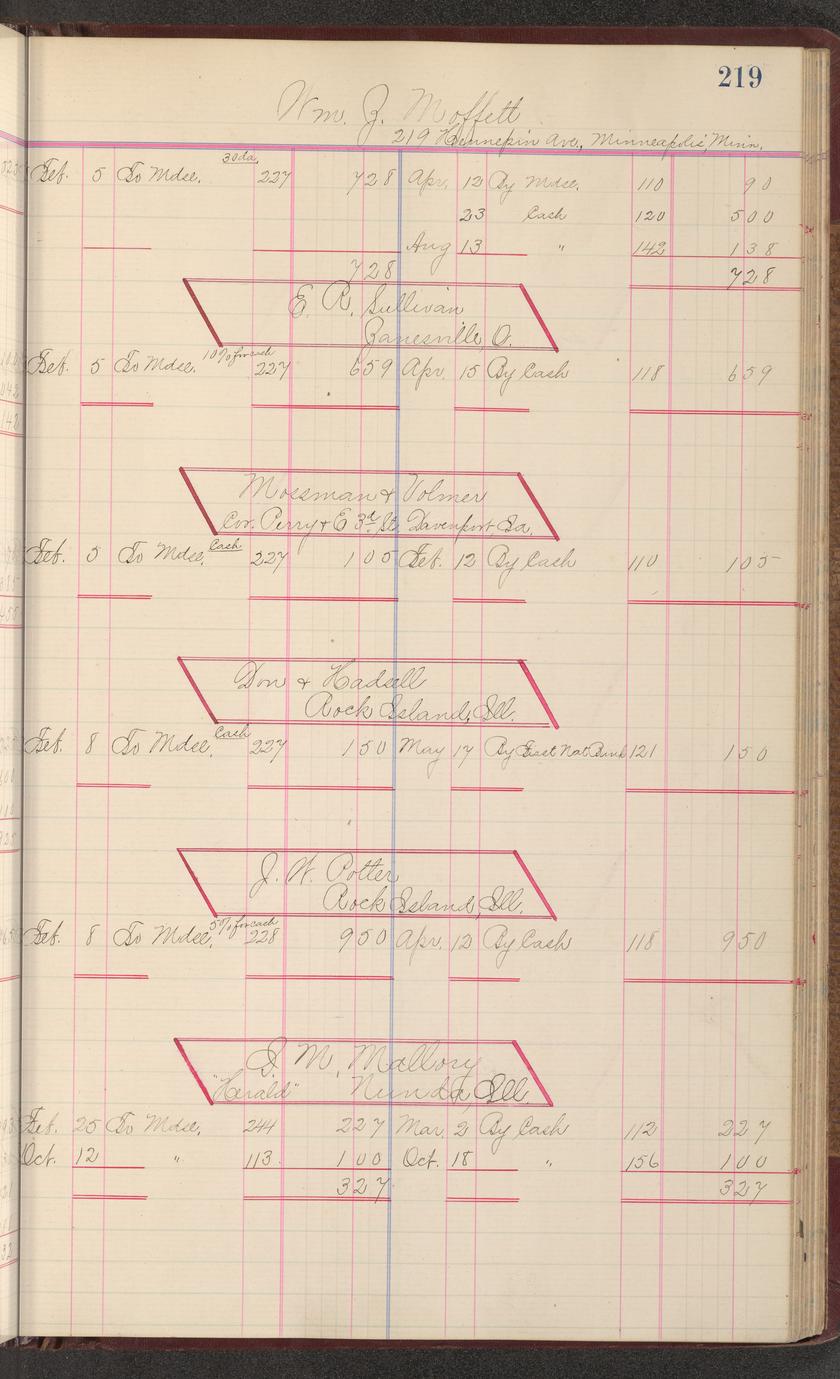 219
Wm. J. Moffett
219 Hennepin Ave., Minneapolis, Minn.
Feb. 5 To Mdse. 30 da. 227 728 Apr. 12 By Mdse. 110 90
23 Cash 120 500
Aug 13 " 142 138
728 728
E. R. Sullivan
Zanesville, O.
Feb. 5 To Mdse. 10% for cash 227 659 Apr. 15 By Cash 118 659
Mossman & Volmer
Cor. Perry & E 3rd Sts, Davenport, Ia.
Feb. 5 To Mdse. Cash 227 105 Feb. 12 By Cash 110 105
Don & Hadsell
Rock Island, Ill.
Feb. 8 To Mdse. Cash 227 150 May 17 By East Nat Bank 121 150
J. W. Potter
Rock Island, Ill.
Feb. 8 To Mdse. 5% for cash 228 950 Apr. 12 By Cash 118 950
I. M. Mallory
"Herald" Nunda, Ill.
Feb. 25 To Mdse. 244 227 Mar. 2 By Cash 112 227
Oct. 12 " 113 100 Oct. 18 " 156 100
327 327